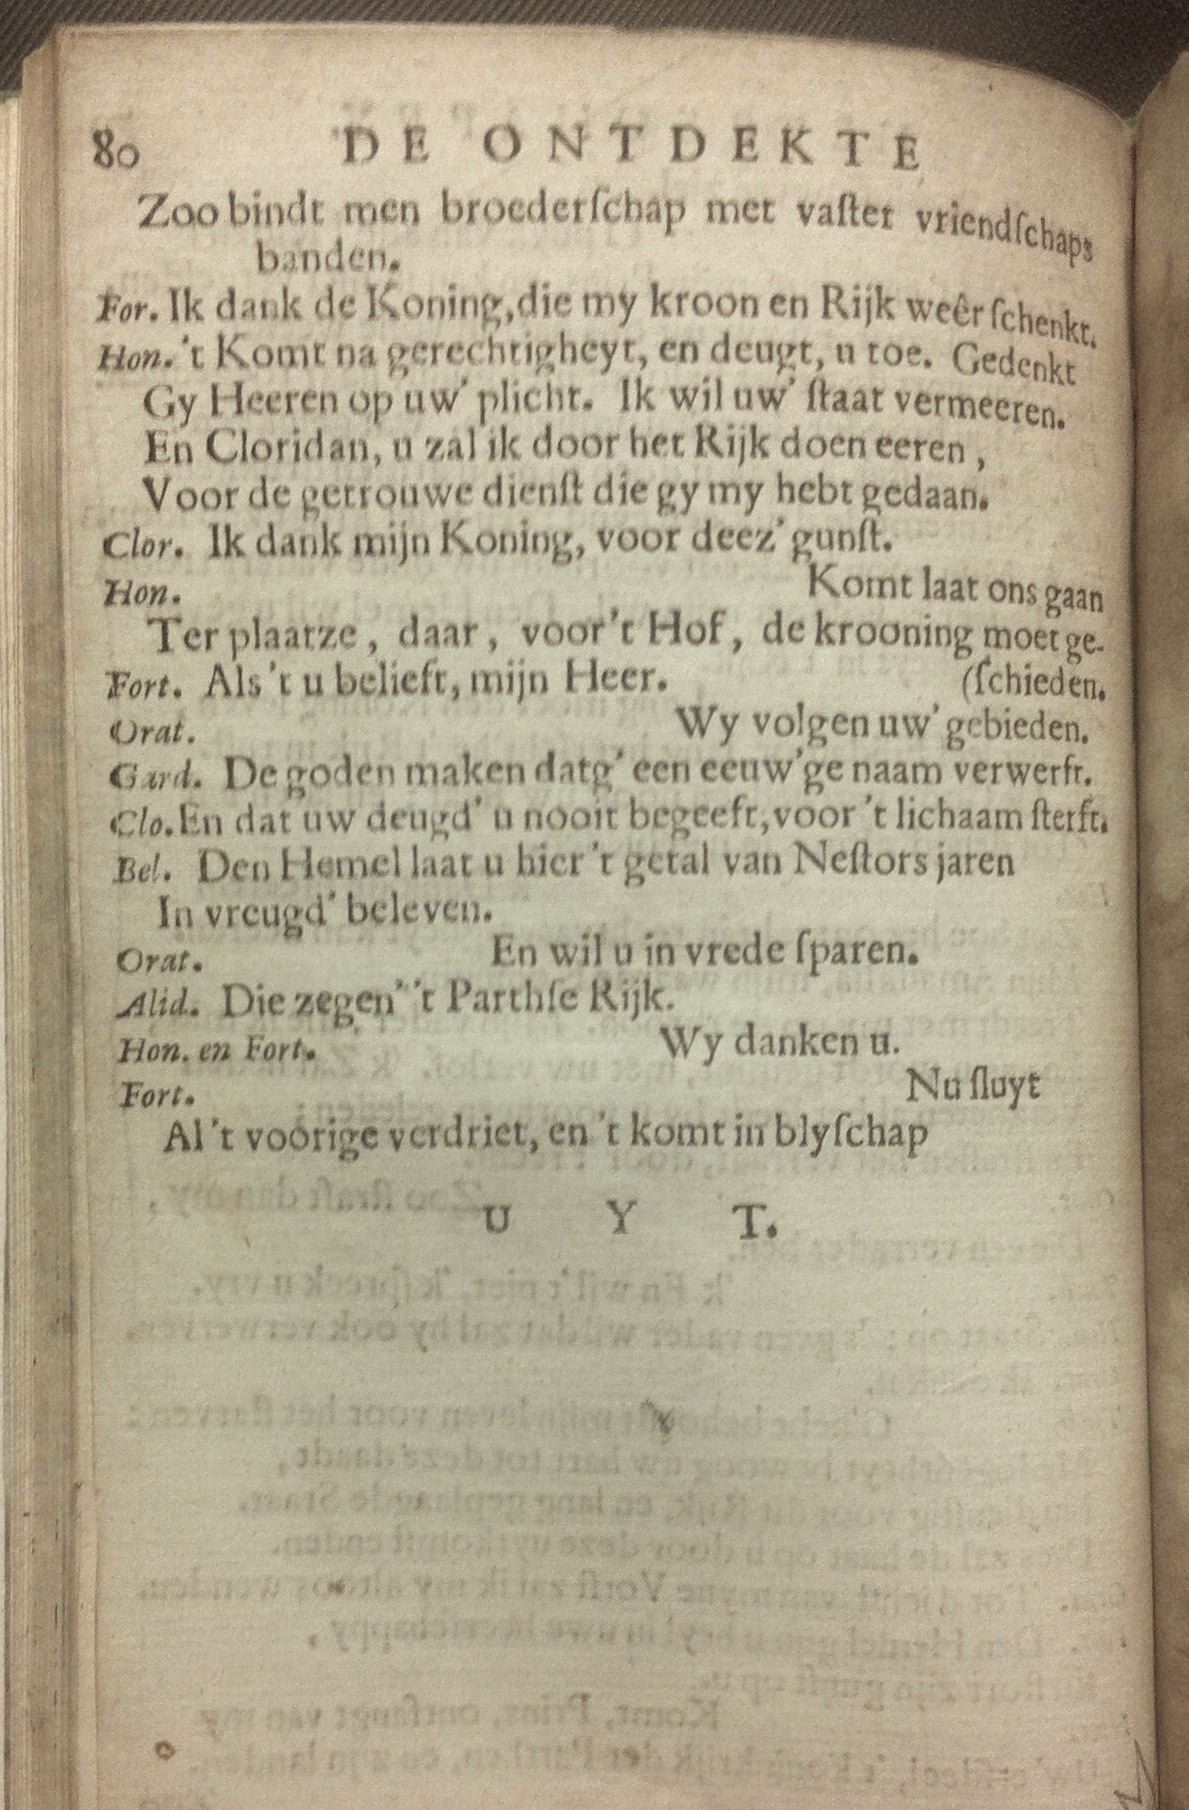 80 DE ONTDEKTE
Zoo bindt men broederſchap met vaſter vriendſchaps
banden.
For. Ik dank de Koning, die my kroon en Rijk weêr ſchenkt.
Hon. 't Komt na gerechtigheyt, en deugt, u toe. Gedenkt
Gy Heeren op uw' plicht. Ik wil uw' ſtaat vermeeren.
En Cloridan, u zal ik door het Rijk doen eeren,
Voor de getrouwe dienſt die gy my hebt gedaan.
Clor. Ik dank mijn Koning, voor deez' gunſt.
Hon. Komt laat ons gaan
Ter plaatze, daar, voor 't Hof, de krooning moet ge-
Fort. Als 't u belieft, mijn Heer. (ſchieden.
Orat. Wy volgen uw' gebieden.
Gard. De goden maken datg' een eeuw'ge naam verwerft.
Clo. En dat uw deugd' u nooit begeeft, voor 't lichaam ſterft.
Bel. Den Hemel laat u hier 't getal van Neſtors jaren
In vreugd' beleven.
Orat. En wil u in vrede ſparen.
Alid. Die zegen' 't Parthſe Rijk.
Hon. en Fort. Wy danken u.
Fort. Nu ſluyt
Al 't voorige verdriet, en 't komt in blyſchap
U Y T.